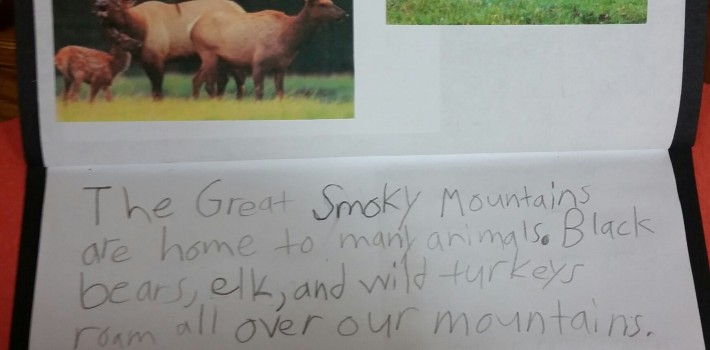 The Great Smoky Mountains
are home to many animals. Black
bears, elk, and wild turkeys
roam all over our mountains.